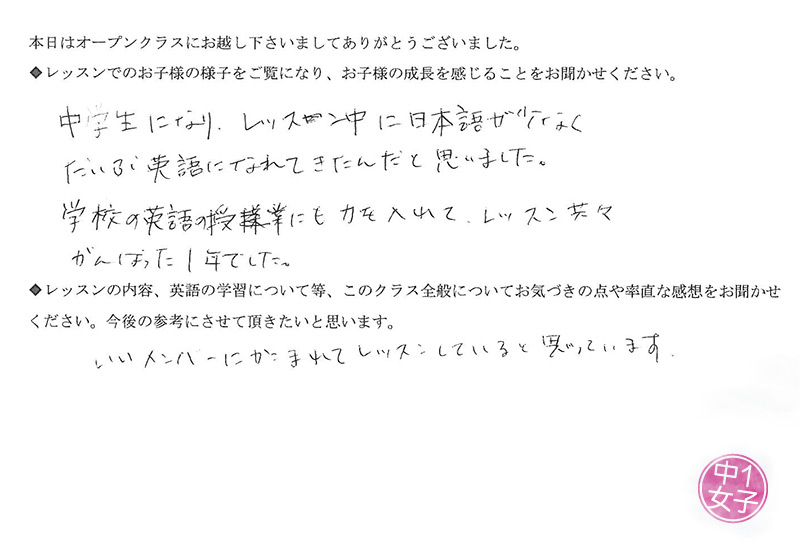 本日はオープンクラスにお越し下さいましてありがとうございました。
◆レッスンでのお子様の様子をご覧になり、お子様の成長を感じることをお聞かせください。
中学生になり、レッスン中に日本語が少なく
だいぶ英語になれてきたんだと思いました。
学校の英語の授業にも力を入れて、レッスン共々
がんばった1年でした。
◆レッスンの内容、英語の学習について等、このクラス全般についてお気づきの点や率直な感想をお聞かせ
ください。今後の参考にさせて頂きたいと思います。
いいメンバーにかこまれてレッスンしていると思っています。
中1
女子